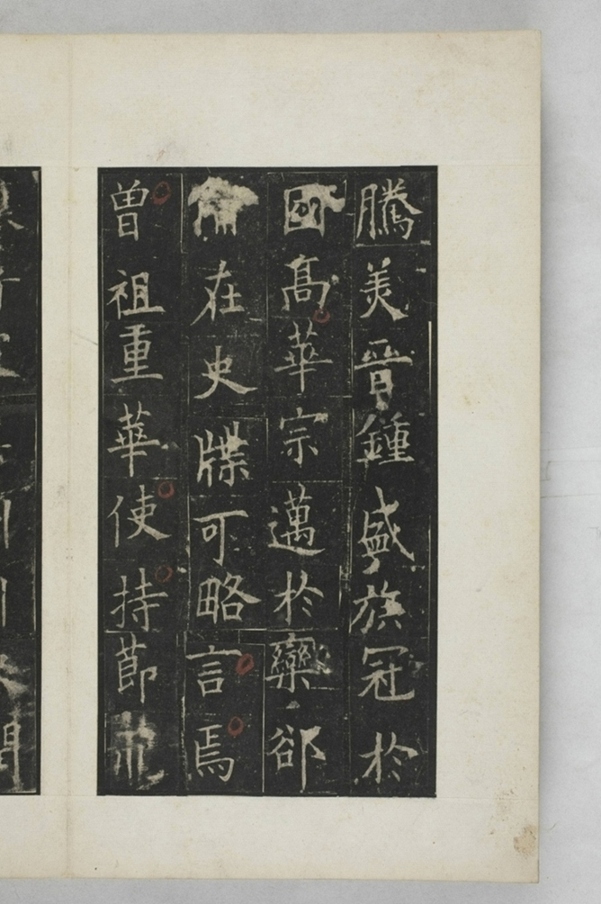 騰美晉鍾盛族冠於
國高華宗邁於欒郤
在史牒可略言焉
曾祖重華使持節